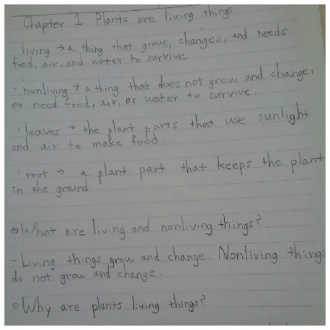 Chapter 1 Plants are living things
· living → a thing that grows, changes, and needs
food, air, and water to survive.
· nonliving → a thing that does not grow and change,
or need food, air, or water to survive.
· leaves → the plant parts that use sunlight
and air to make food.
· root → a plant part that keeps the plant
in the ground
What are living and nonliving things?
- Living things grow and change. Nonliving things
do not grow and change.
Why are plants living things?